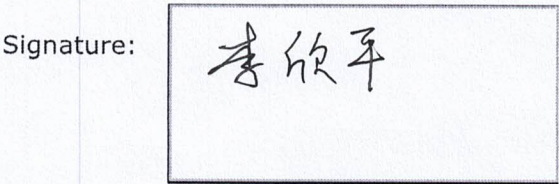 Signature:
李欣平